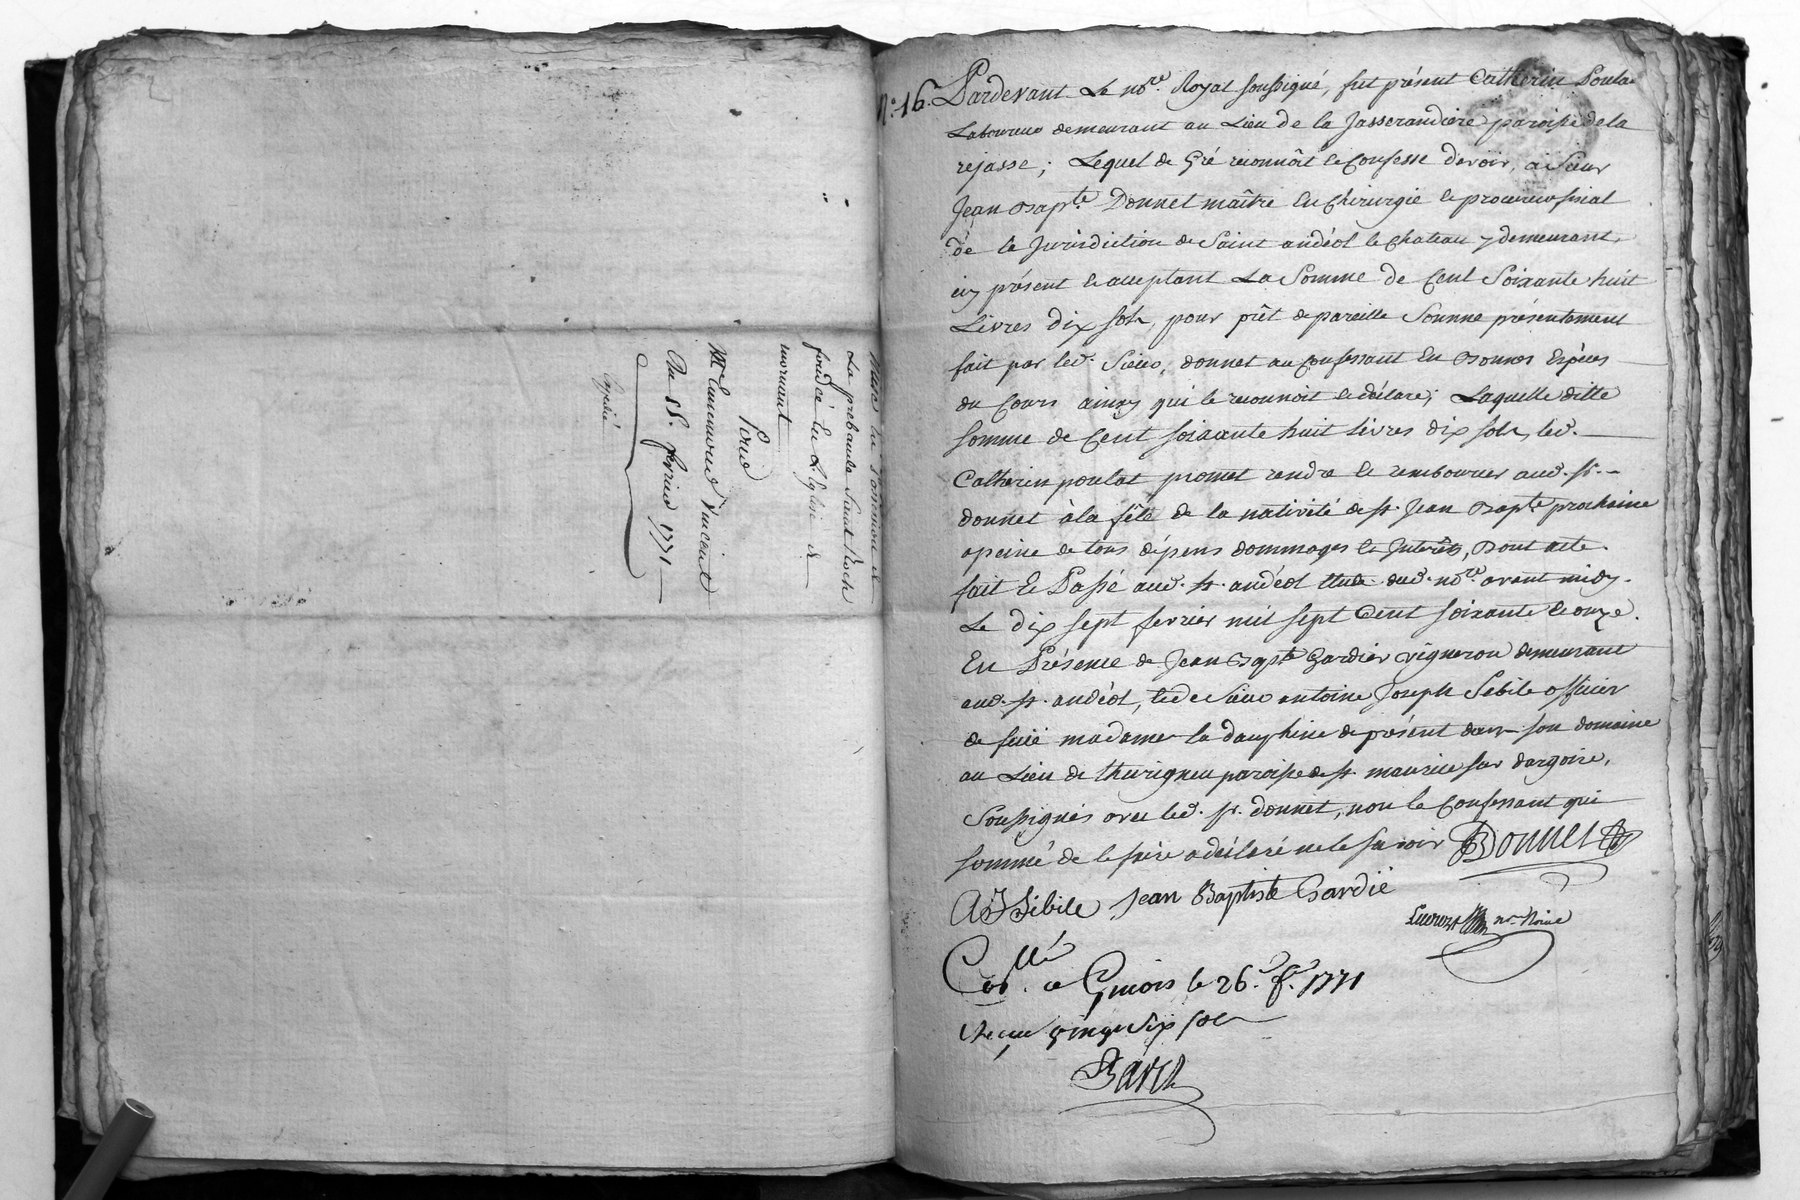 La prebande Saint Roch
fondée En L'église de
mornant
Pour
Mre Vincent
Du 15. fevrier 1771
Expédié
N°. 16. Pardevant Le nore. Royal soussigné, fut présent Catherin Poulat
Laboureur demeurant au Lieu de la Jasserandiere paroisse de la
rejasse; Lequel de Gré reconnôit et Confesse devoir, à Sieur
Jean Bapte. Donnet maître En Chirurgie et procureur fiscal
de la Jurisdiction de Saint andéol le Chateau y demeurant,
icy présent et acceptant La Somme de Cent Soixante huit
Livres dix sols, pour prêt de pareille Somme présentement
fait par led. Sieur, donnet au Confessant En Bonnes Espèces
du Cours ainsy qu'il le reconnoit et déclare; Laquelle ditte
Somme de Cent soixante huit livres dix sols, led.
Catherin poulat promet rendre et rembourser aud. sr.
donnet à la fête de la nativité de st. Jean Bapte prochaine
apeine de tous dépens dommages et Interêts, Dont acte.
fait Et Passé aud. st. andéol Etude dud. nore. avant midy.
Le dix sept fevrier mil sept Cent soixante et onze.
En Présence de Jean Bapte Gardier vigneron demeurant
aud. st. andéol, et de Sieur antoine Joseph Sibile officier
de feüe madame la dauphine de présent dans son domaine
au Lieu de thurigneu paroisse de st. maurice sur dargoire,
Soussignés avec led. sr. donnet, non le Confessant qui
sommé de le faire a déclaré ne le savoir Donnet
AJ Sibile Jean Baptiste Gardié
nre Roial
Collé. a Gjuors le 26. f. 1771
Recu vingt Six sols